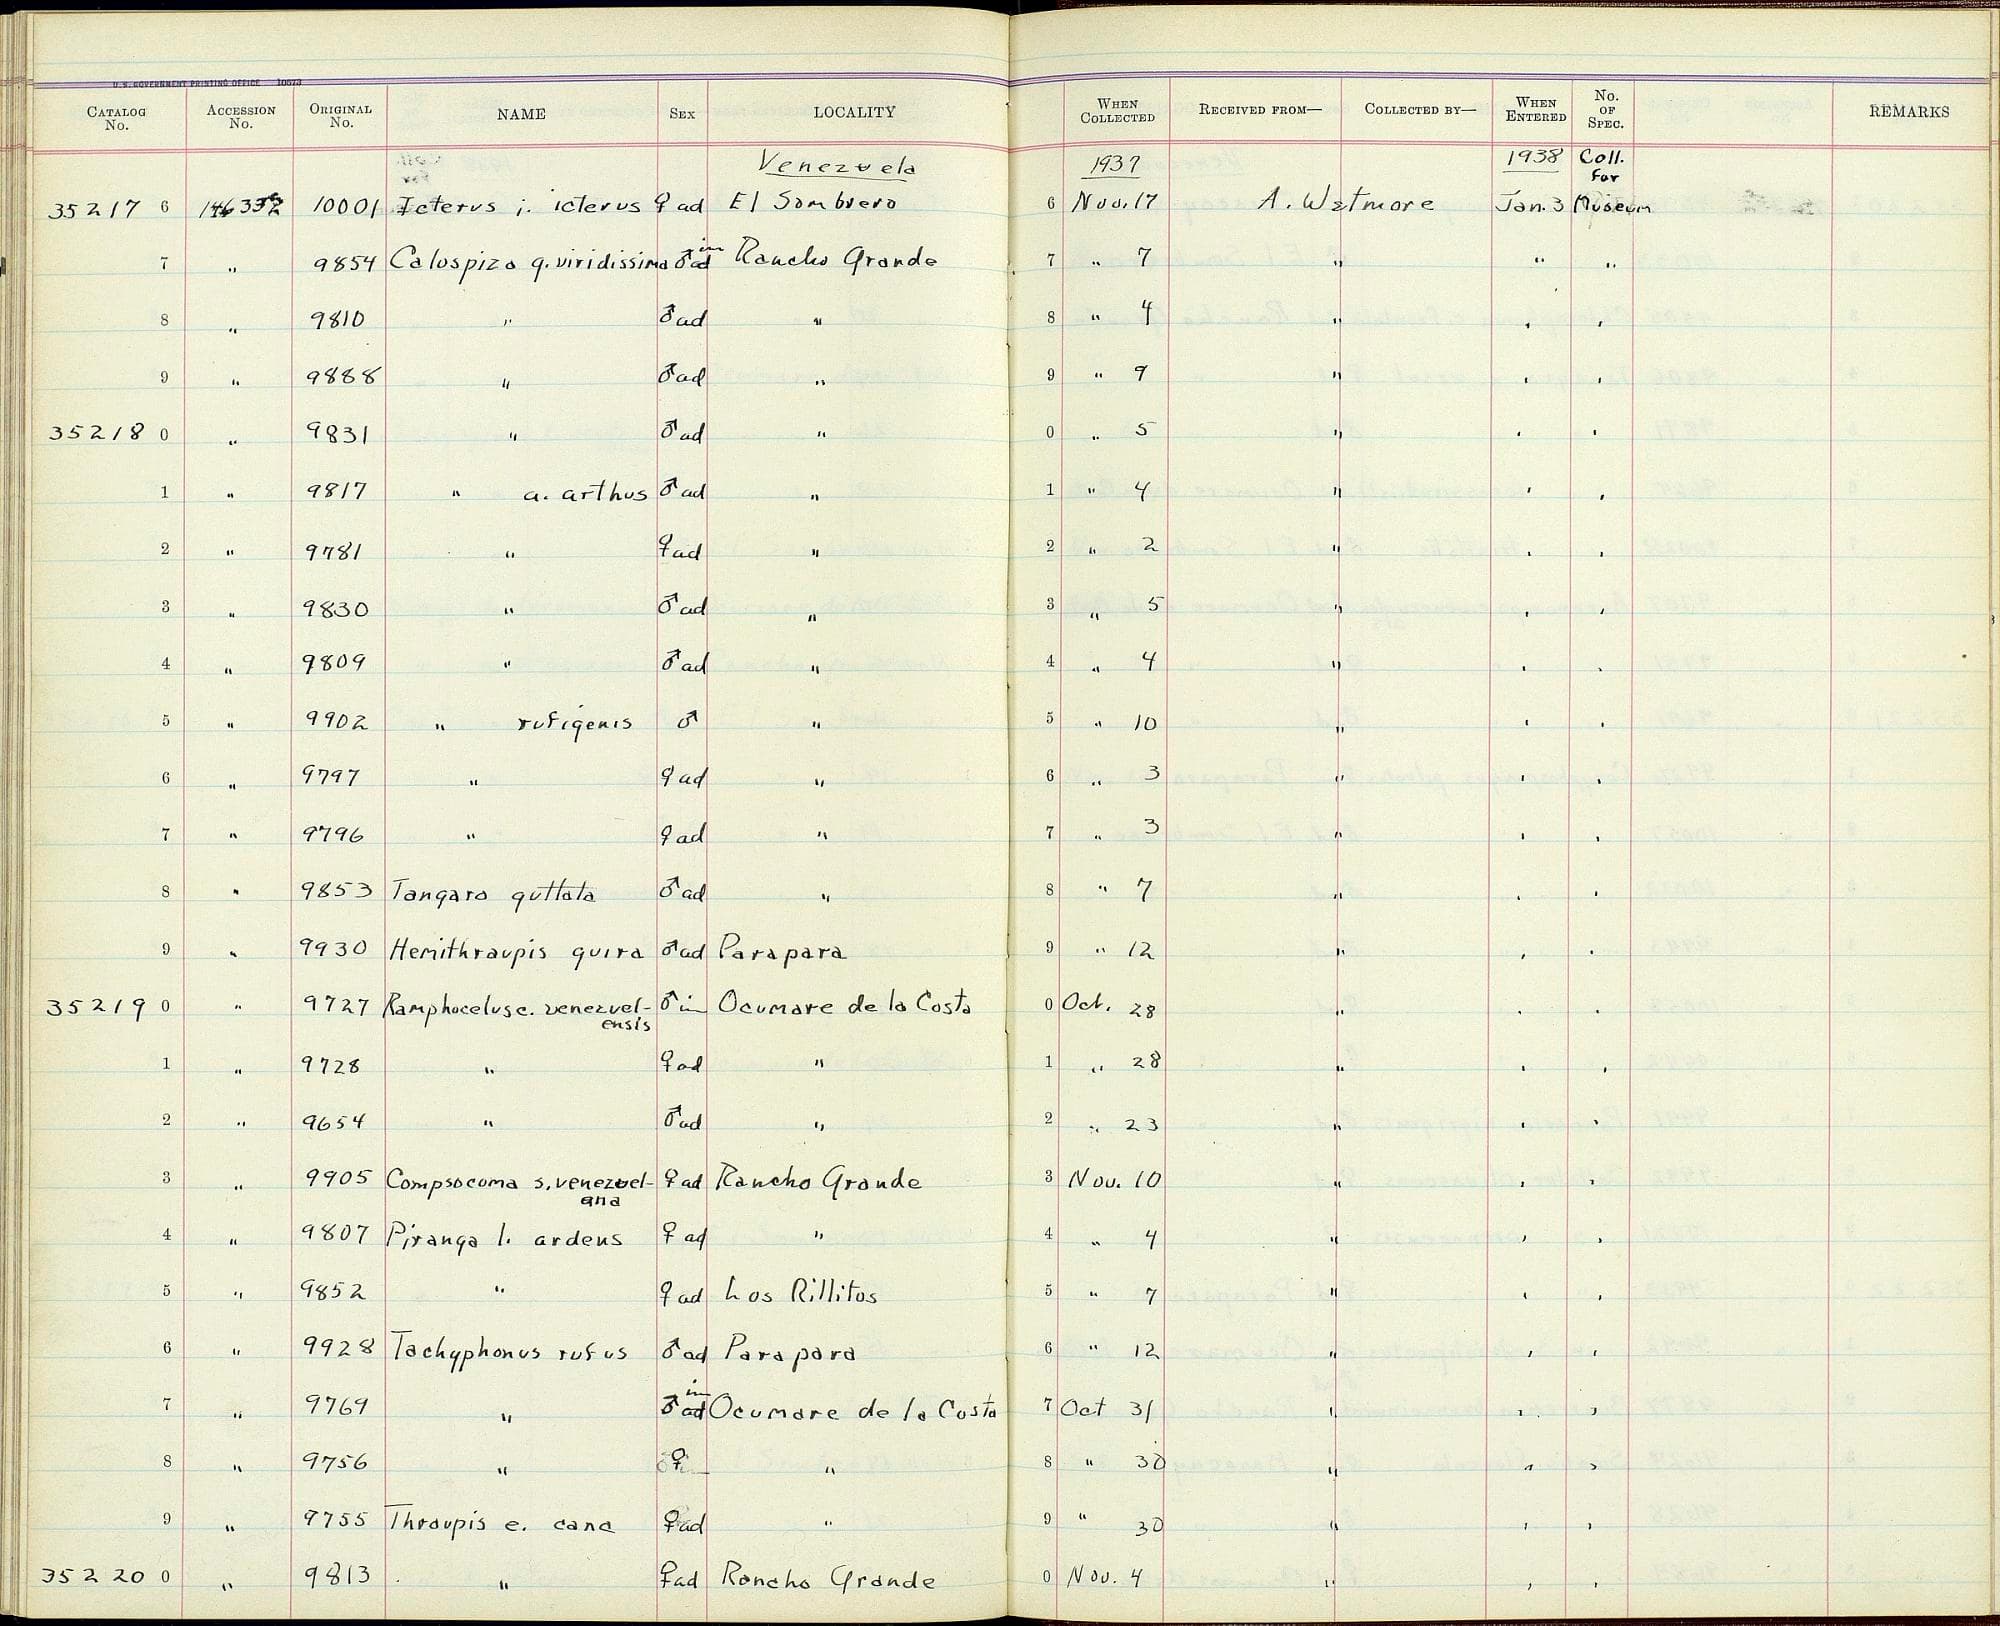 U.S. GOVERNMENT PRINTING OFFICE 10673
CATALOG No. ACCESSION No. ORIGINAL No. NAME SEX LOCALITY WHEN COLLECTED RECEIVED FROM— COLLECTED BY— WHEN ENTERED No. OF SPEC. REMARKS
Venezuela 1937 1938 Coll. for
35217 6 10001 Icterus i. icterus ♀ ad El Sombrero 6 Nov. 17 A. Wetmore Jan. 3 Museum
7 " 9854 Calospiza g. viridissima ♂ im ad Rancho Grande 7 " 7 " " "
8 " 9810 " ♂ ad " 8 " 4 " " "
9 " 9888 " ♂ ad " 9 " 9 " " "
35218 0 " 9831 " ♂ ad " 0 " 5 " " "
1 " 9817 " a. arthus ♂ ad " 1 " 4 " " "
2 " 9781 " ♀ ad " 2 " 2 " " "
3 " 9830 " ♂ ad " 3 " 5 " " "
4 " 9809 " ♂ ad " 4 " 4 " " "
5 " 9902 " rufigenis ♂ " 5 " 10 " " "
6 " 9797 " ♀ ad " 6 " 3 " " "
7 " 9796 " ♀ ad " 7 " 3 " " "
8 " 9853 Tangara guttata ♂ ad " 8 " 7 " " "
9 " 9930 Hemithraupis guira ♂ ad Parapara 9 " 12 " " "
35219 0 " 9727 Ramphocelus c. venezuel- ♂ im Ocumare de la Costa 0 Oct. 28 " " "
ensis
1 " 9728 " ♀ ad " 1 " 28 " " "
2 " 9654 " ♂ ad " 2 " 23 " " "
3 " 9905 Compsocoma s. venezuel- ♀ ad Rancho Grande 3 Nov. 10 " " "
ana
4 " 9807 Piranga l. ardens ♀ ad " 4 " 4 " " "
5 " 9852 " ♀ ad Los Rillitos 5 " 7 " " "
6 " 9928 Tachyphonus rufus ♂ ad Parapara 6 " 12 " " "
7 " 9769 " ♂ im ad Ocumare de la Costa 7 Oct 31 " " "
8 " 9756 " ♀ " 8 " 30 " " "
9 " 9755 Thraupis e. cana ♀ ad " 9 " 30 " " "
35220 0 " 9813 " ♀ ad Rancho Grande 0 Nov. 4 " " "